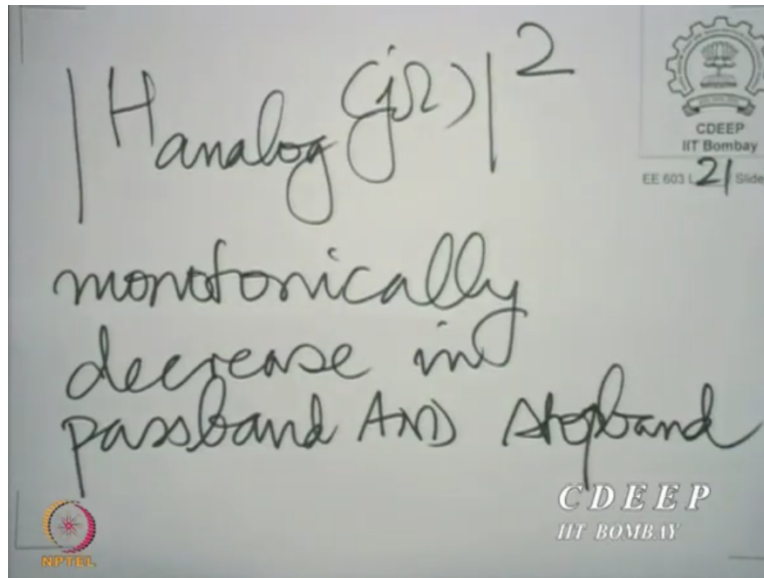 |Hanalog(jΩ)|²
CDEEP
IIT Bombay
EE 603 L 21 Slide
monotonically
decrease in
passband AND stopband
CDEEP
IIT BOMBAY
NPTEL